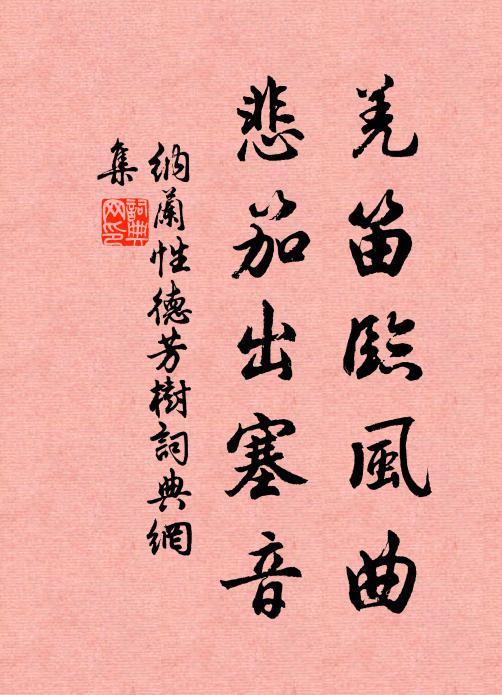 羌笛臨風曲
悲笳出塞音
納蘭性德芳樹詞典網
集
詞典網印